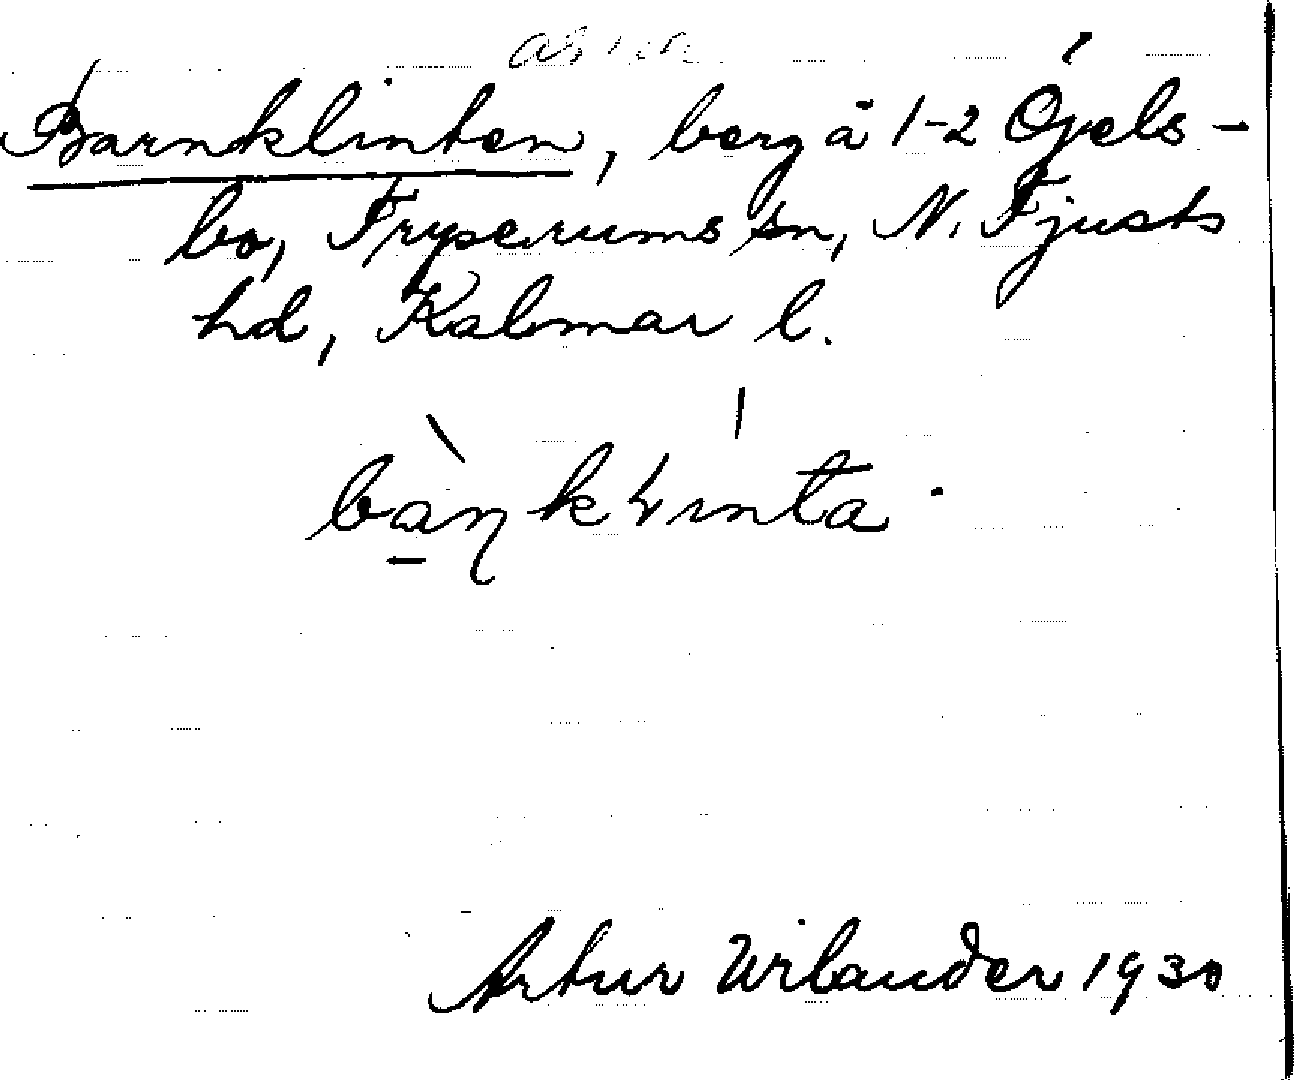 Barnklinten, berg å 1-2 Ögels-
bo, Tryserums sn, N. Tjusts
hd, Kalmar l.
bàn̨kłinta.
Artur Wilander 1930